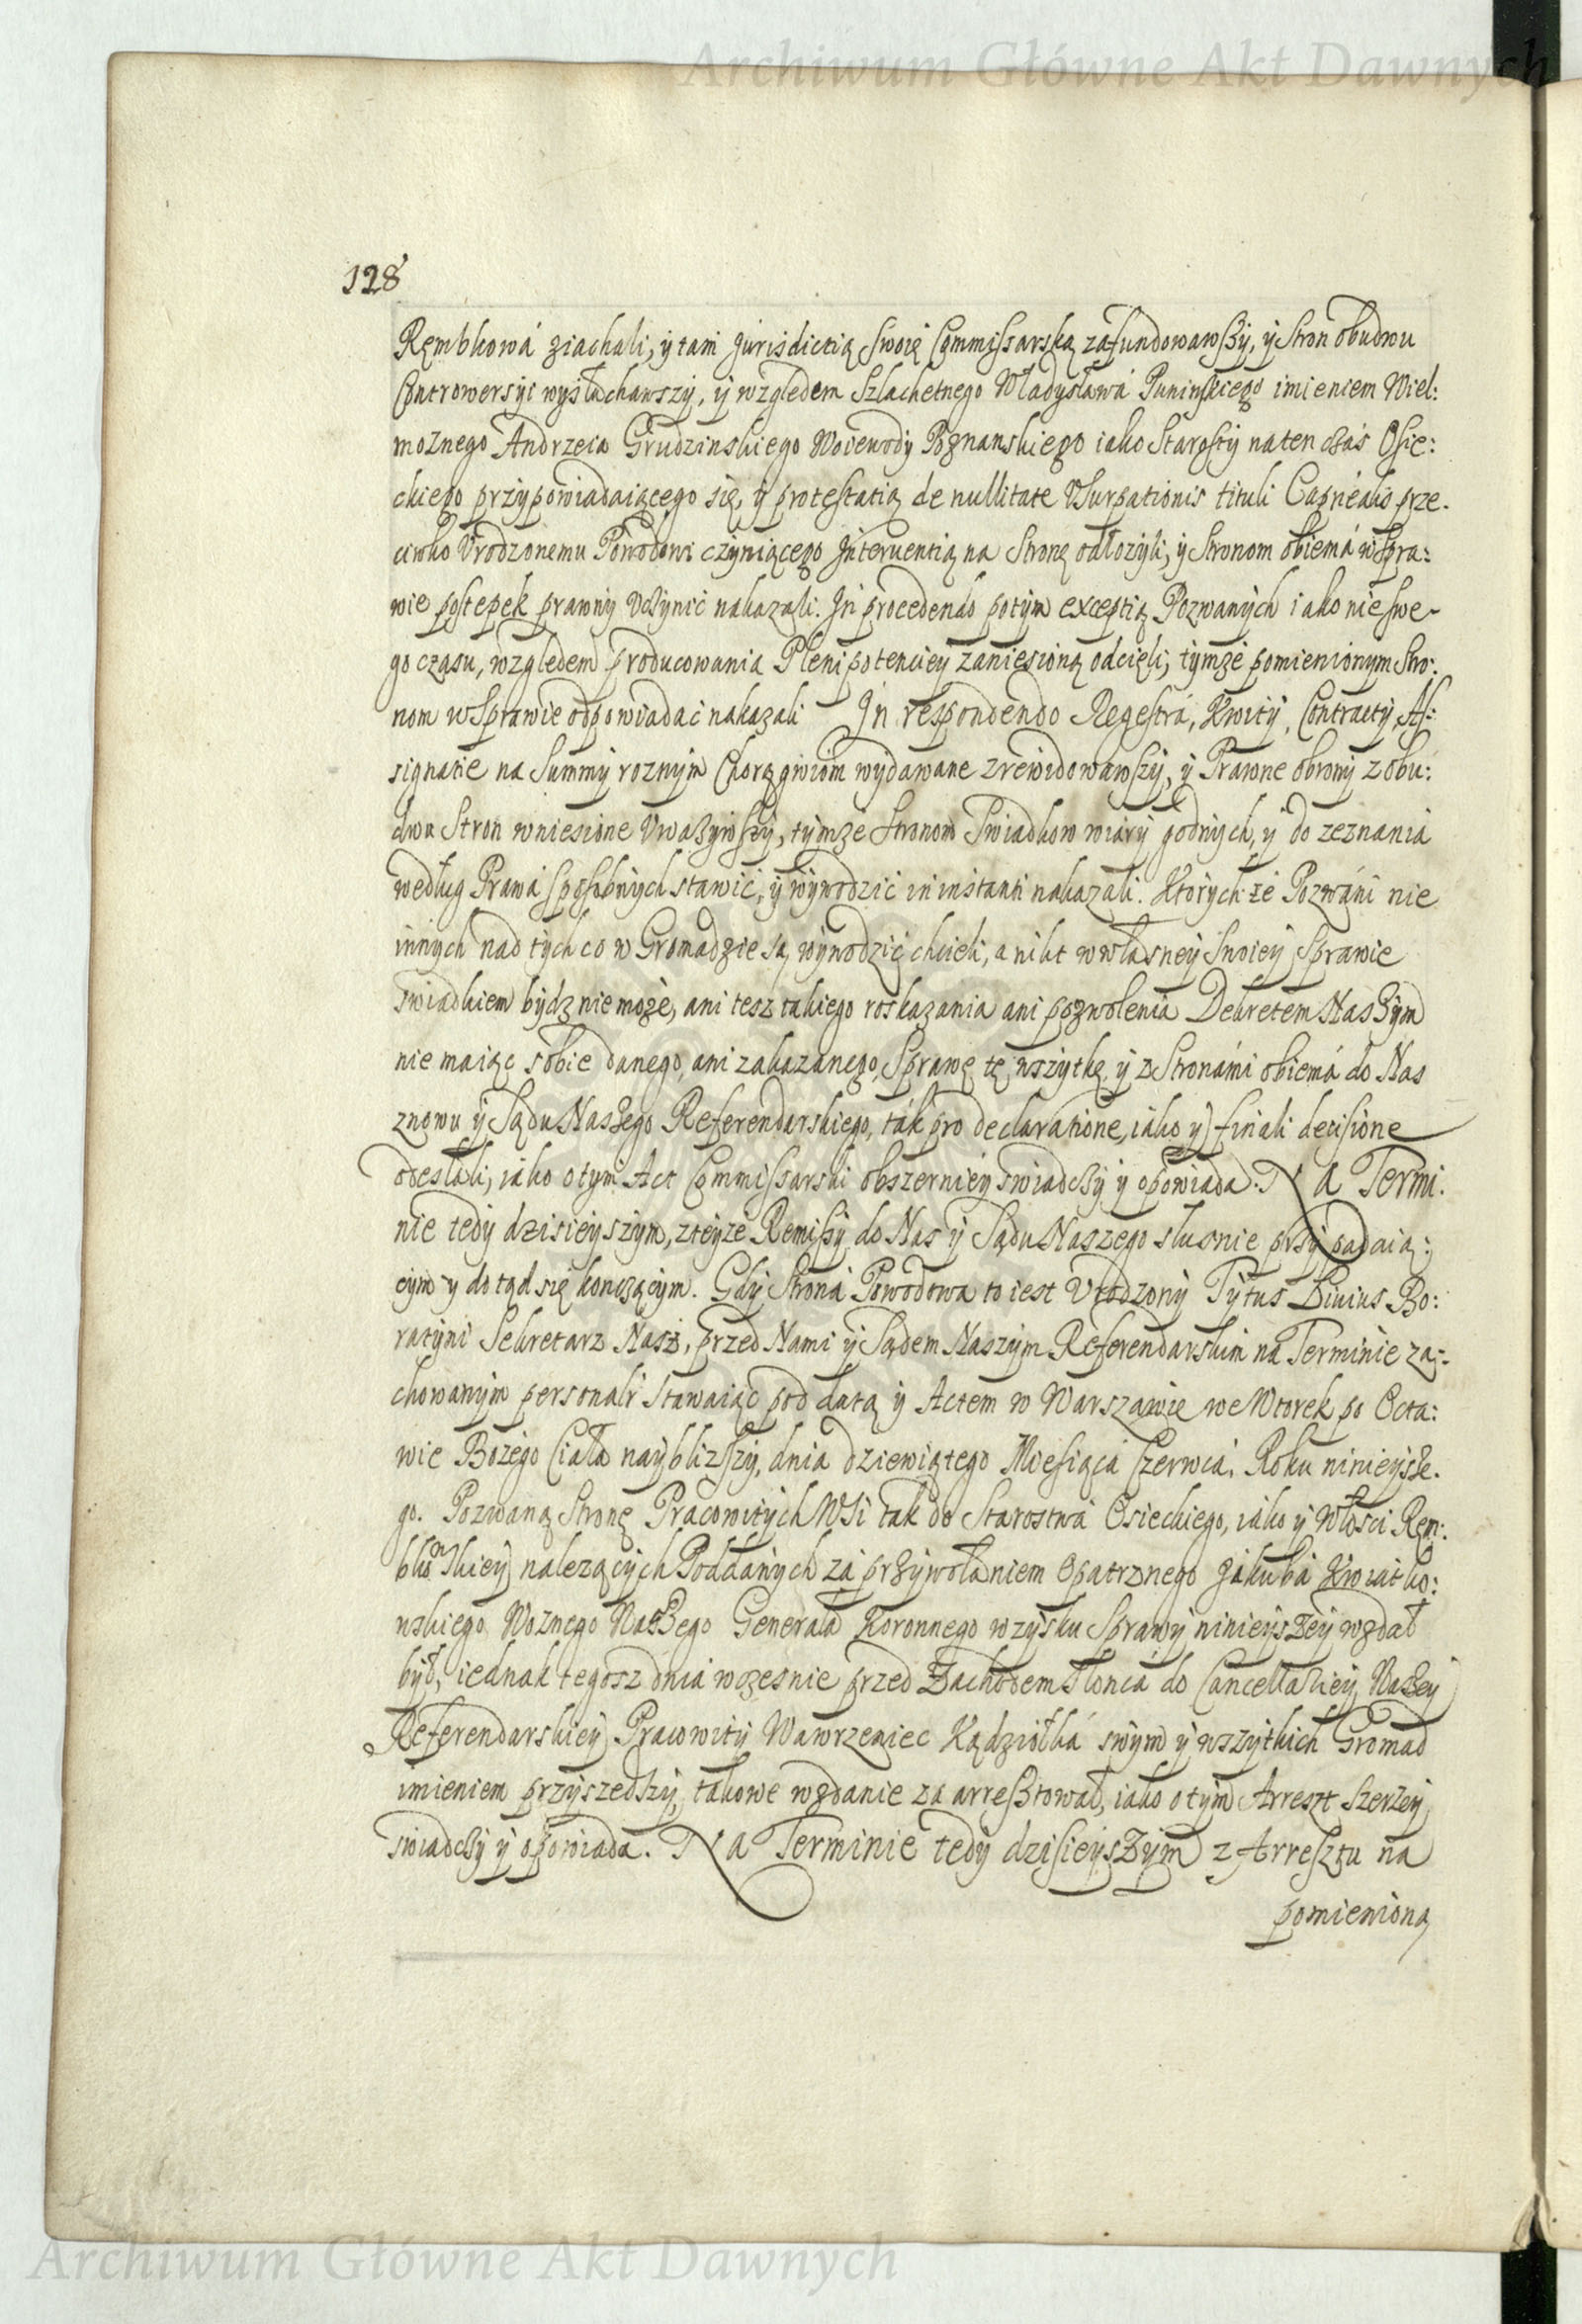 Archiwum Główne Akt Dawnych
128
Rębkowá ziachali, y tam Jurisdictią swoię Commissarską zafundowawszy, y Stron obudwu
Controwersyi wysłuchawszy, y względem Szlachetnego Władysławá Puninskiego imieniem Wiel:
moznego Andrzeia Grudzinskiego Woiewody Poznanskiego iako Starosty na ten czás Osie:
ckiego przypowiadaiącego się, y protestatią de nullitate Vsurpationis tituli Capnealis prze-
ciwko Vrodzonemu Powodowi czyniącego Interuentią na Stronę odłozyli, y Stronom obiemá w Spra:
wie postępek prawny vczynić nakazali. In procedendo potym exceptią Pozwanych iako nie swe-
go czasu, względem producowania Plenipotenciey zaniesioną odcięli, tymze pomienionym Stro:
nom w Sprawie odpowiadać nakazali In respondendo Regestrá, Kwity, Contracty, As:
signatie na Summy roznym Chorągwiom wydawane zrewidowawszy, y Prawne obrony z obu:
dwu Stron wniesione Vwazywszy, tymze Stronom Swiadkow wiary godnych, y do zeznania
według Prawá sposobnych stawić, y wywodzić in instanti nakazali. Których że Pozwáni nie
innych nad tych co w Gromadzie są wywodzić chcieli, a nikt w własney swoiey Sprawie
swiadkiem bydz nie może, ani tesz takiego roskazania ani pozwolenia Dekretem Naszym
nie maiąc sobie danego, ani zakazanego, Sprawę tę wszytkę y z Stronámi obiemá do Nas
znowu y Sądu Naszego Referendarskiego, ták pro declaratione, iako y finali decisione
odesłali, iako o tym Act Commissarski obszerniey swiadczy y opowiada. Na Termi:
nie tedy dzisieyszym, z teyze Remissy do Nas y Sądu Naszego slusnie przypadaią:
cym y dotąd się konczącym. Gdy Stroná Powodowa to iest Vrodzony Tytus Liuius Bo:
ratyni Sekretarz Nasz, przed Nami y Sądem Naszym Referendarskim ná Terminie za:
chowanym personalr stawaiąc pod datą y Actem w Warszawie we Wtorek po Octa:
wie Bozego Ciała naybliszszy, dnia dziewiątego Miesiącá Czerwcá, Roku ninieysze.
go. Pozwaną Stronę Pracowitych Wsi tak do Starostwá Osieckiego, iako y Włości Ręm:
bkowskiey nalezących Poddánych zá przywołaniem Opatrznego Jakubá Kwiatko:
wskiego Woznego Naszego Generałá Koronnego w zysku Sprawy ninieyszey wzdał
był, iednak tegosz dniá wczesnie przed Zachodem Słońca do Cancellariey Naszey
Referendarskiey Pracowity Wawrzeniec Kądziołká swym y wszytkich Gromad
imieniem przyszedszy, takowe wzdanie zaarresztował, iako o tym Arreszt szerzey
swiadczy y opowiada. Na Terminie tedy dzisieyszym z Arresztu na
pomienioną
Archiwum Główne Akt Dawnych